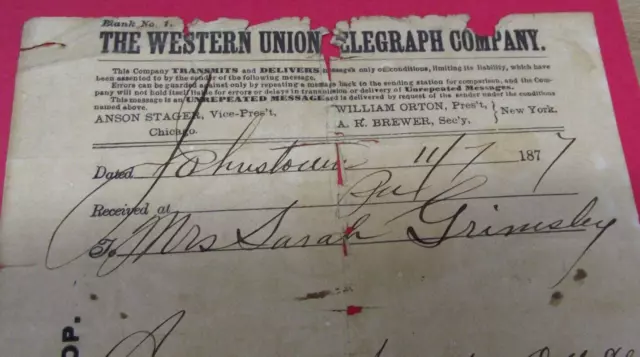 Blank No. 1.
THE WESTERN UNION TELEGRAPH COMPANY.
This Company TRANSMITS and DELIVERS messages only on conditions, limiting its liability, which have
been assented to by the sender of the following message.
Errors can be guarded against only by repeating a message back to the sending station for comparison, and the Com-
pany will not hold itself liable for errors or delays in transmission or delivery of Unrepeated Messages.
This message is an UNREPEATED MESSAGE and is delivered by request of the sender under the conditions
named above.
ANSON STAGER, Vice-Pres't,
Chicago.
WILLIAM ORTON, Pres't,
A. R. BREWER, Sec'y,
New York.
Dated Johnstown 11/7 1877
Received at Pa
To Mrs Sarah Grimsley
OP.